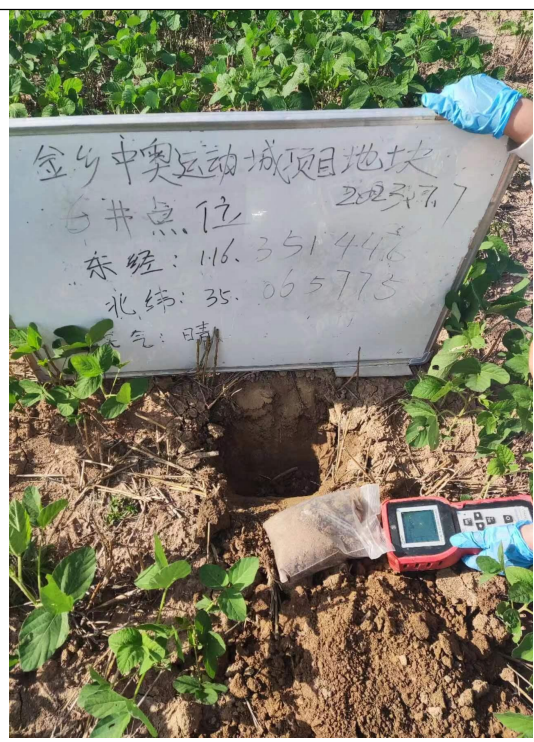 金乡中奥运动城项目地块
2023.7.7
6井点位
东经：116.351446
北纬：35.065775
天气：晴